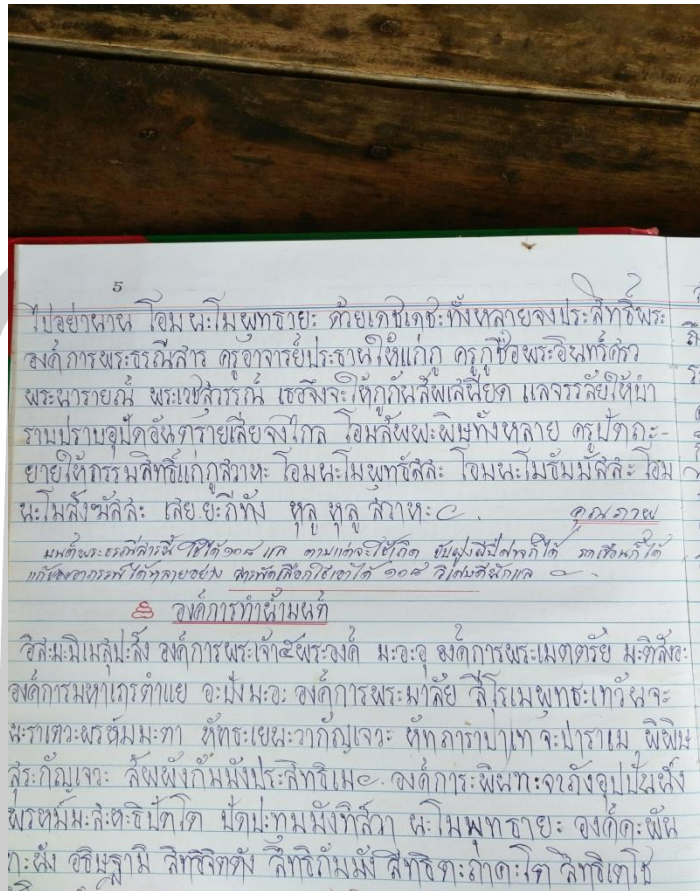 5
ไปอย่านาน โอมนะโมพุทธายะ ด้วยเดชเดชะทั้งหลายจงประสิทธิ์พระ
องค์การพระธรณีสาร ครูอาจารย์ประธานให้แก่กู ครูกูชื่อพระอินทร์ศวร
พระนารายณ์ พระเวชสุวรรณ์ เธอจึงจะให้กูกันสัพเสนียด แลจรรลัยให้บำ
ราบปราบอุปัดอันตรายเสียจงไกล โอมสัพพะพิษทั้งหลาย ครูปัตถะ-
ยายให้ธรรมสิทธิ์แก่กูสวาหะ โอมนะโมพุทธัสสะ โอมนะโมธัมมัสสะ โอม
นะโมสังฆัสสะ เสยยะถีทัง หุลู หุลู สวาหะฯ. คุณภาพ
มนต์พระธรณีสารนี้ ใช้ได้ ๑๐๘ แล ตามแต่จะใช้เถิด ขับฝูงผีปีศาจก็ได้ รดเรือนก็ได้
ได้หลายอย่าง สารพัดเลือกใช้เอาได้ ๑๐๘ วิเศษดีนักแล
องค์การทำน้ำมนต์
อิสะมะมิเมสุปะสัง องค์การพระเจ้า๕พระองค์ มะอะอุ องค์การพระเมตตรัย มะติสังอะ
องค์การมหาเถรตำแย อะปังมะอะ องค์การพระมาลัย สีโรเมพุทธะเทวัญจะ
นะราเตวะพรหัมมะทา หัทธะเยนะวากัญเจวะ หัทถาราปาเท จะปาราเม พิพิษ
สุระกัญเจวะ สัพพังกัมมังประสิทธิเมฯ. องค์การะพินทะจาถังอุปปันนัง
พรหมัมะสะหะธิปัตโต ปัดปะทุมมังทิสวา นะโมพุทธายะ องค์คะพัน
ทะนัง อธิษฐามิ สิทธิจิตตัง สิทธิกัมมัง สิทธิตะถาคะโต สิทธิเตโช